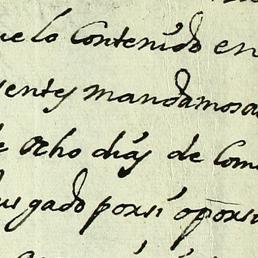 ue lo Contenido en
entes mandamos a
e ocho días de Com
gado por sí o por su